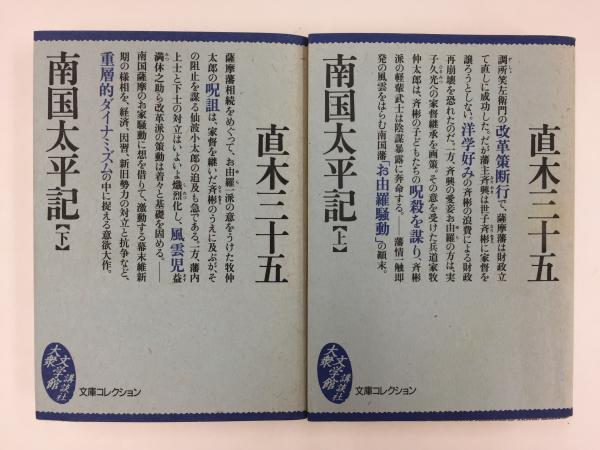 直木三十五
調所笑左衛門の改革策断行で、薩摩藩は財政立
て直しに成功した。だが藩主斉興は世子斉彬に家督を
譲ろうとしない。洋学好みの斉彬の浪費による財政
再崩壊を恐れたのだ。一方、斉興の愛妾お由羅の方は、実
子久光への家督継承を画策。その意を受けた兵道家牧
仲太郎は、斉彬の子どもたちの呪殺を謀り、斉彬
派の軽輩武士は陰謀暴露に奔命する。――藩情一触即
発の風雲をはらむ南国藩「お由羅騒動」の顛末。
南国太平記【上】
大衆文学館
講談社
文庫コレクション
直木三十五
薩摩藩相続をめぐって、お由羅一派の意をうけた牧仲
太郎の呪詛は、家督を継いだ斉彬のうえに及ぶが、そ
の阻止を謀る仙波小太郎の追及も急である。一方、藩内
上士と下士の対立はいよいよ熾烈化し、風雲児益
満休之助ら改革派の策動は着々と基礎を固める。――
南国薩摩のお家騒動に想を借りて、激動する幕末維新
期の様相を、経済、因習、新旧勢力の対立と抗争など、
重層的ダイナミズムの中に捉える意欲大作。
南国太平記【下】
大衆文学館
講談社
文庫コレクション